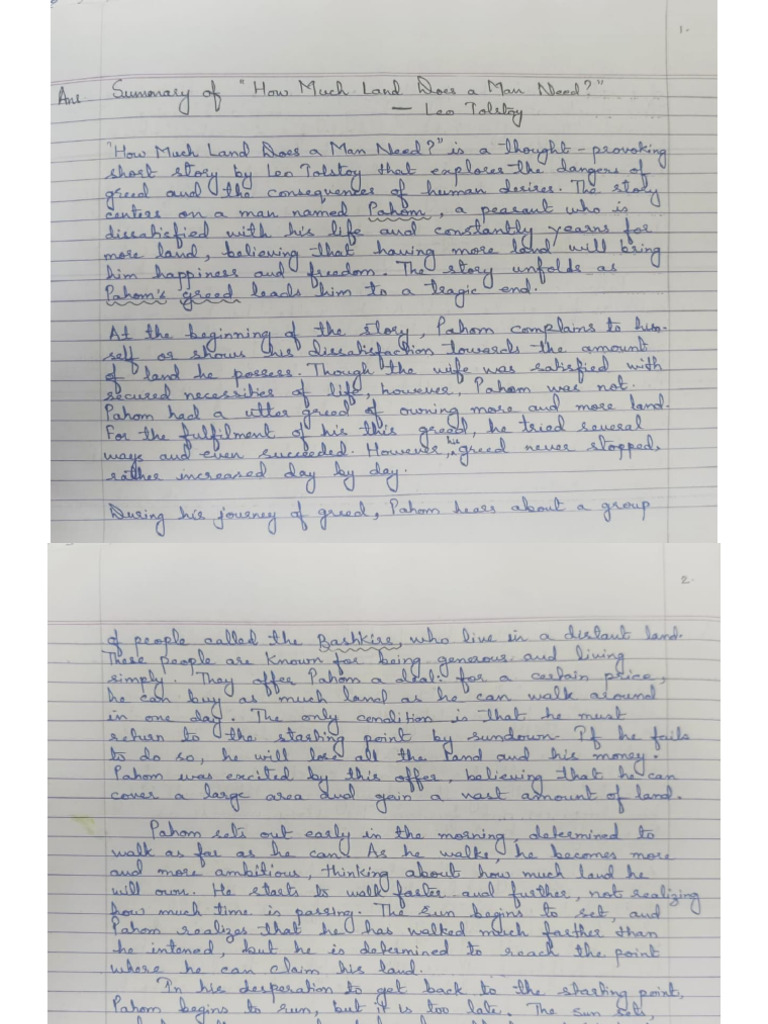 1.
Ans Summary of "How Much Land Does a Man Need?"
— Leo Tolstoy
"How Much Land Does a Man Need?" is a thought-provoking
short story by Leo Tolstoy that explores the dangers of
greed and the consequences of human desires. The story
centers on a man named Pahom, a peasant who is
dissatisfied with his life and constantly yearns for
more land, believing that having more land will bring
him happiness and freedom. The story unfolds as
Pahom's greed leads him to a tragic end.
At the beginning of the story, Pahom complains to him-
self or shows his dissatisfaction towards the amount
of land he possess. Though the wife was satisfied with
secured necessities of life, however, Pahom was not.
Pahom had a utter greed of owning more and more land.
For the fulfilment of his this greed, he tried several
ways and even succeeded. However, his greed never stopped,
rather increased day by day.
During his journey of greed, Pahom hears about a group
2.
of people called the Bashkirs, who live in a distant land.
These people are known for being generous and living
simply. They offer Pahom a deal: for a certain price,
he can buy as much land as he can walk around
in one day. The only condition is that he must
return to the starting point by sundown. If he fails
to do so, he will lose all the land and his money.
Pahom was excited by this offer, believing that he can
cover a large area and gain a vast amount of land.
Pahom sets out early in the morning, determined to
walk as far as he can. As he walks, he becomes more
and more ambitious, thinking about how much land he
will own. He starts to walk faster and further, not realizing
how much time is passing. The sun begins to set, and
Pahom realizes that he has walked much farther than
he intened, but he is determined to reach the point
where he can claim his land.
In his desperation to get back to the starting point,
Pahom begins to run, but it is too late. The sun sets,